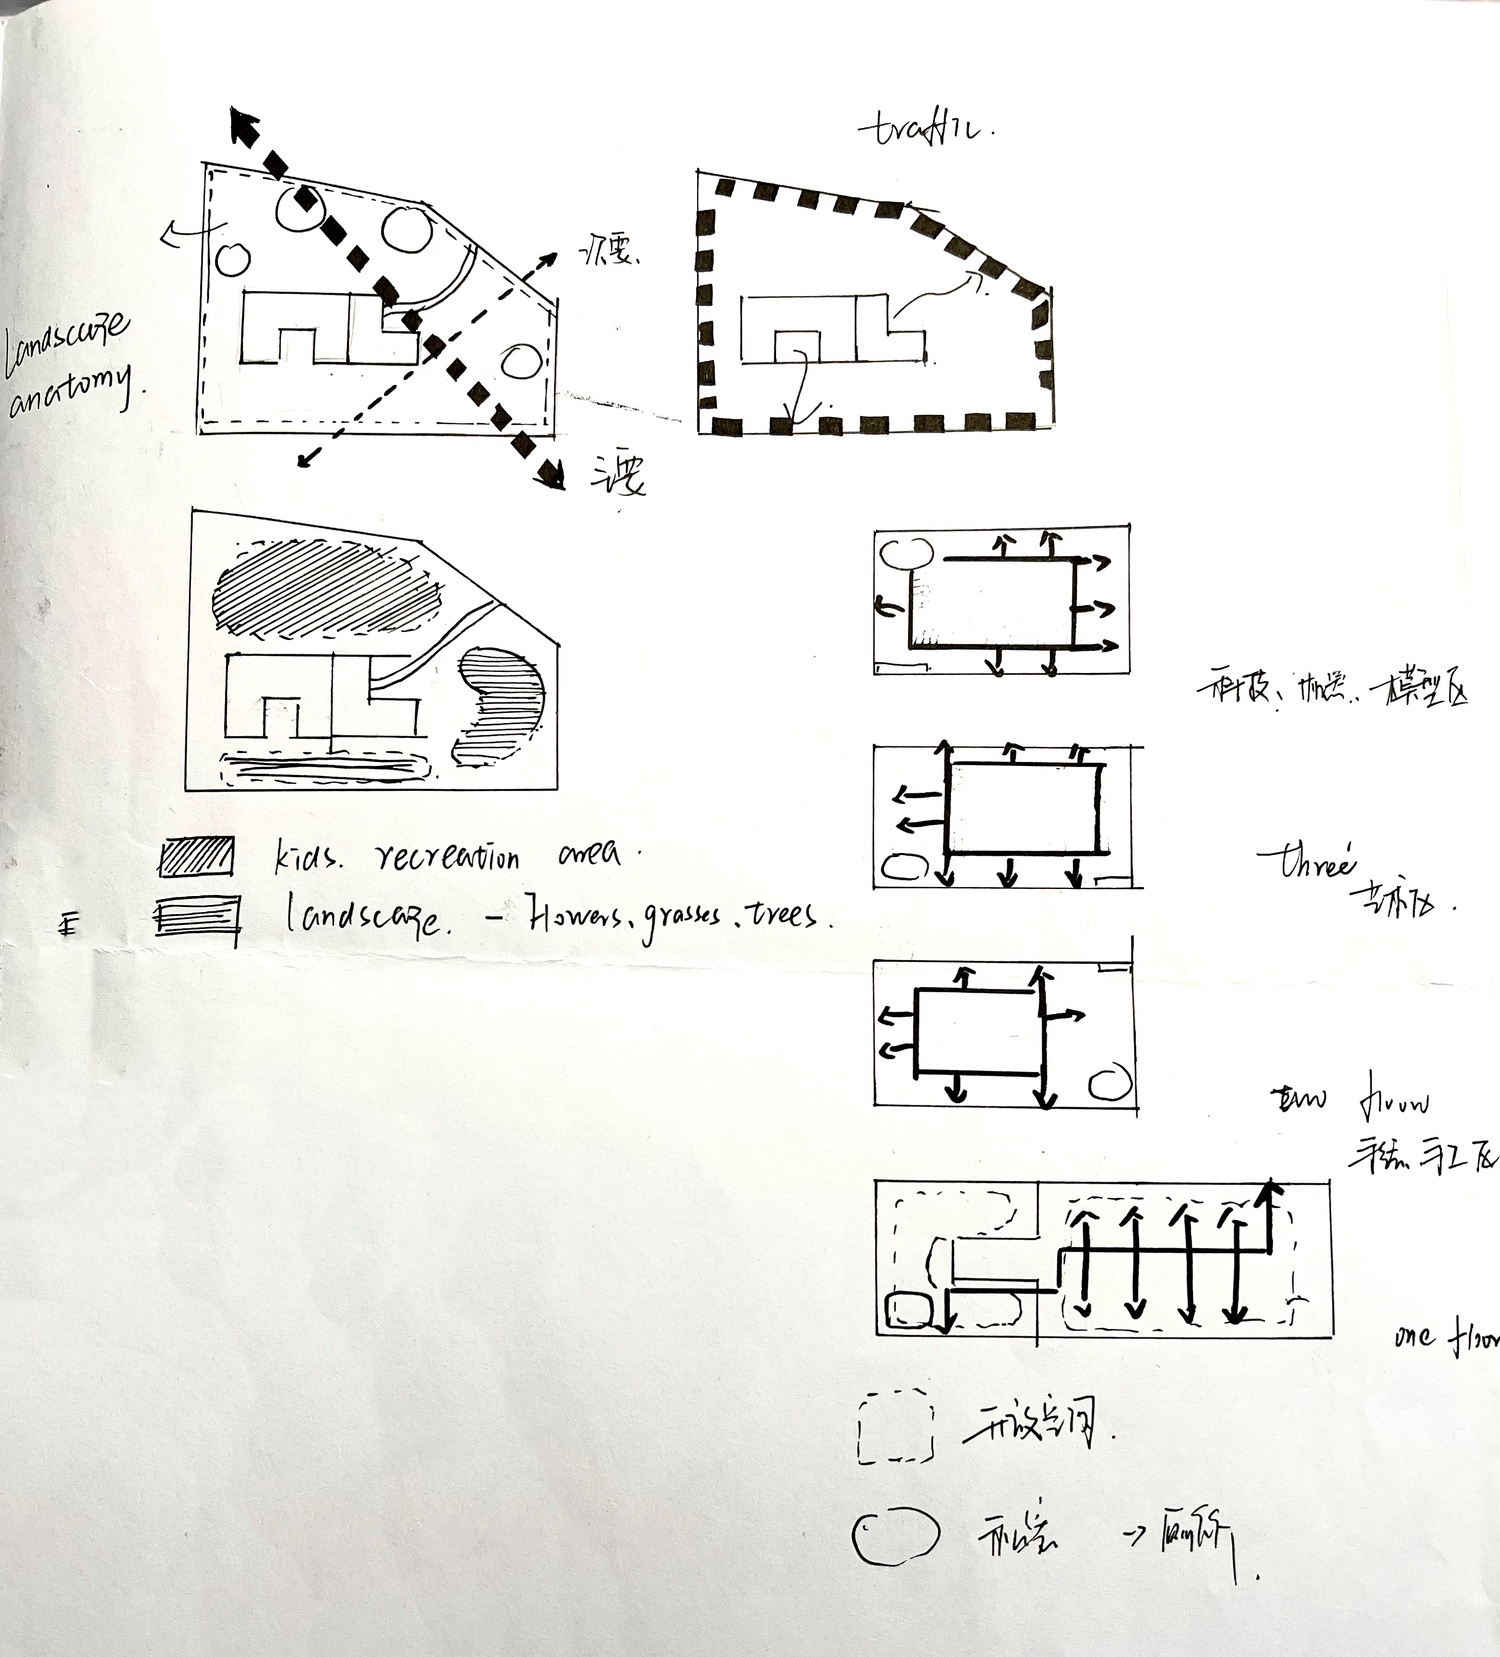 traffic.
次要.
landscape
anatomy.
主要
科技、
模型区
kids. recreation area.
landscape. - Flowers、grasses、trees.
three
艺术区.
two floor
手工区
one floor
开放空间.
私密 → 厕所.